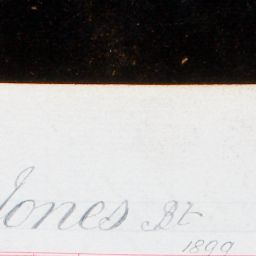 Jones St
1899